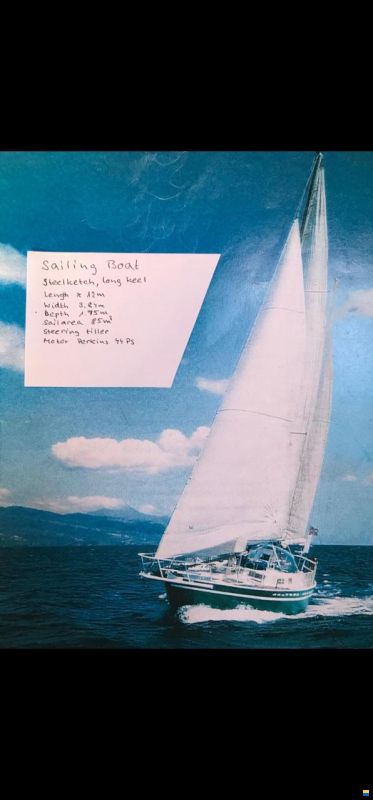 Sailing Boat
Steelketch, long keel
Length 12m
Width 3.84m
Depth 1.95m
Sailarea 85m²
Steering tiller
Motor Perkins 44 PS